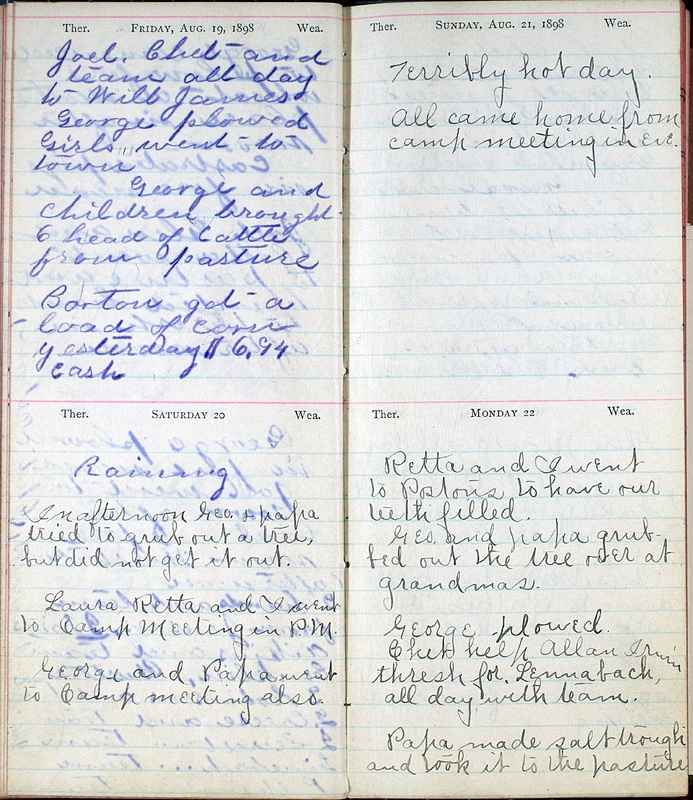 Ther. FRIDAY, AUG. 19, 1898 Wea.
Joel. Chet and
team all day
to Will James
George plowed
Girls went to
town
George and
Children brought
6 head of Cattle
from pasture
Barton got a
load of corn
yesterday $6.94
Cash
Ther. SATURDAY 20 Wea.
Raining
In afternoon Geo. & papa
tried to grub out a tree,
but did not get it out.
Laura Retta and I went
to Camp Meeting in P.M.
George and Papa went
to Camp meeting also.
Ther. SUNDAY, AUG. 21, 1898 Wea.
Terribly hot day.
All came home from
camp meeting in Eve.
Ther. MONDAY 22 Wea.
Retta and I went
to Postons to have our
teeth filled.
Geo. and papa grub-
bed out the tree over at
grandmas.
George plowed.
Chet help Allan Irwin
thresh for Lennabach,
all day with team.
Papa made salt trough
and took it to the pasture